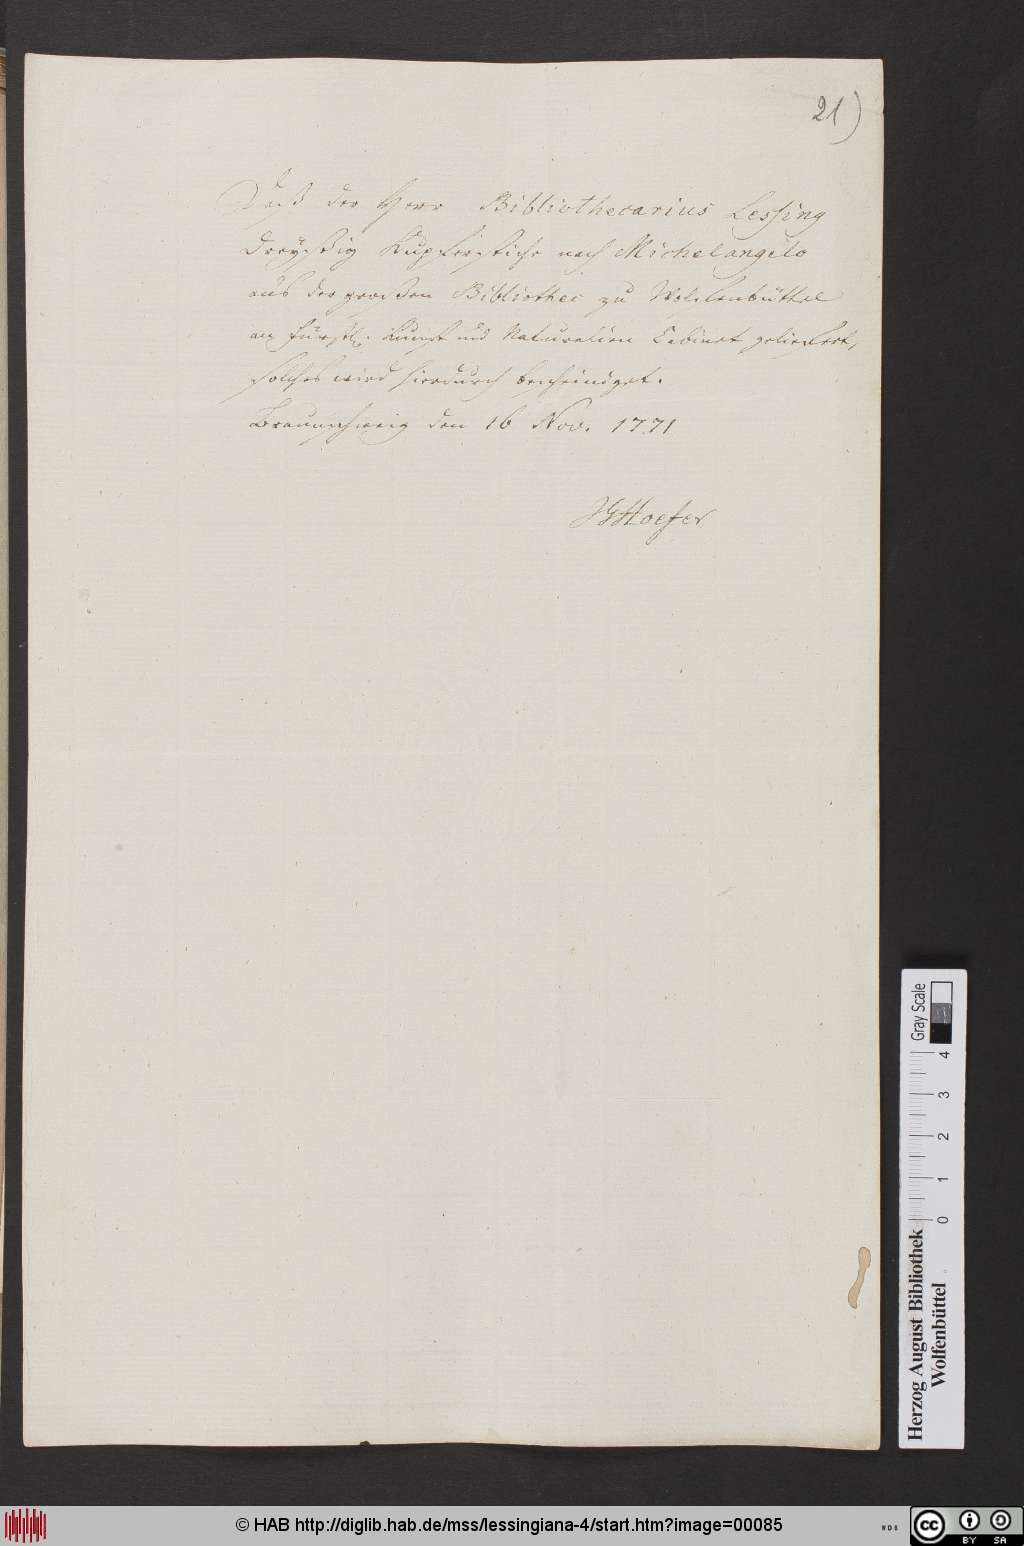 21)
Daß der Herr Bibliothecarius Lessing
dreyßig Kupferstiche nach Michelangelo
aus der großen Bibliothec zu Wolfenbüttel
an Fürstl. Kunst und Naturalien Cabinet geliefert,
solches wird hierdurch bescheiniget.
Braunschweig den 16 Nov. 1771
Hoefer
Gray Scale
4
3
2
1
0
Herzog August Bibliothek
Wolfenbüttel
© HAB http://diglib.hab.de/mss/lessingiana-4/start.htm?image=00085
cc BY SA